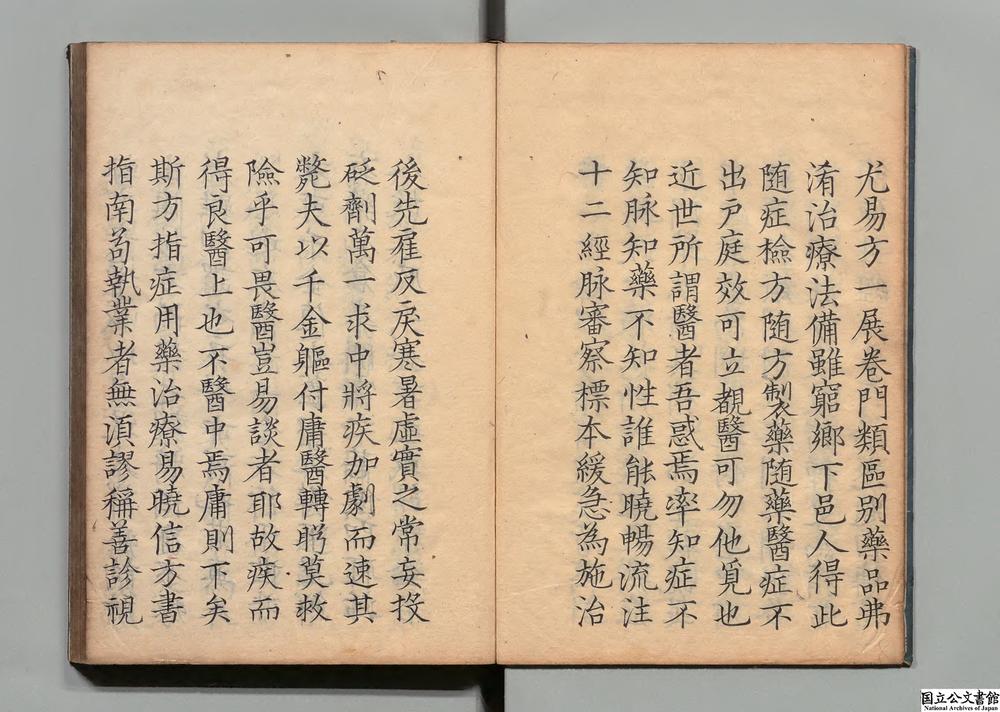 尤易方一展卷門類區别藥品弗
淆治療法備雖窮鄉下邑人得此
随症檢方随方製藥随藥醫症不
出戸庭效可立覩醫可勿他覓也
近世所謂醫者吾惑焉率知症不
知脉知藥不知性誰能曉暢流注
十二經脉審察標本緩急為施治
後先雇反戻寒暑虛實之常妄投
砭劑萬一求中將疾加劇而速其
斃夫以千金軀付庸醫轉盻莫救
險乎可畏醫豈易談者耶故疾而
得良醫上也不醫中焉庸則下矣
斯方指症用藥治療易曉信方書
指南苟執業者無湏謬稱善診視
国立公文書館
National Archives of Japan